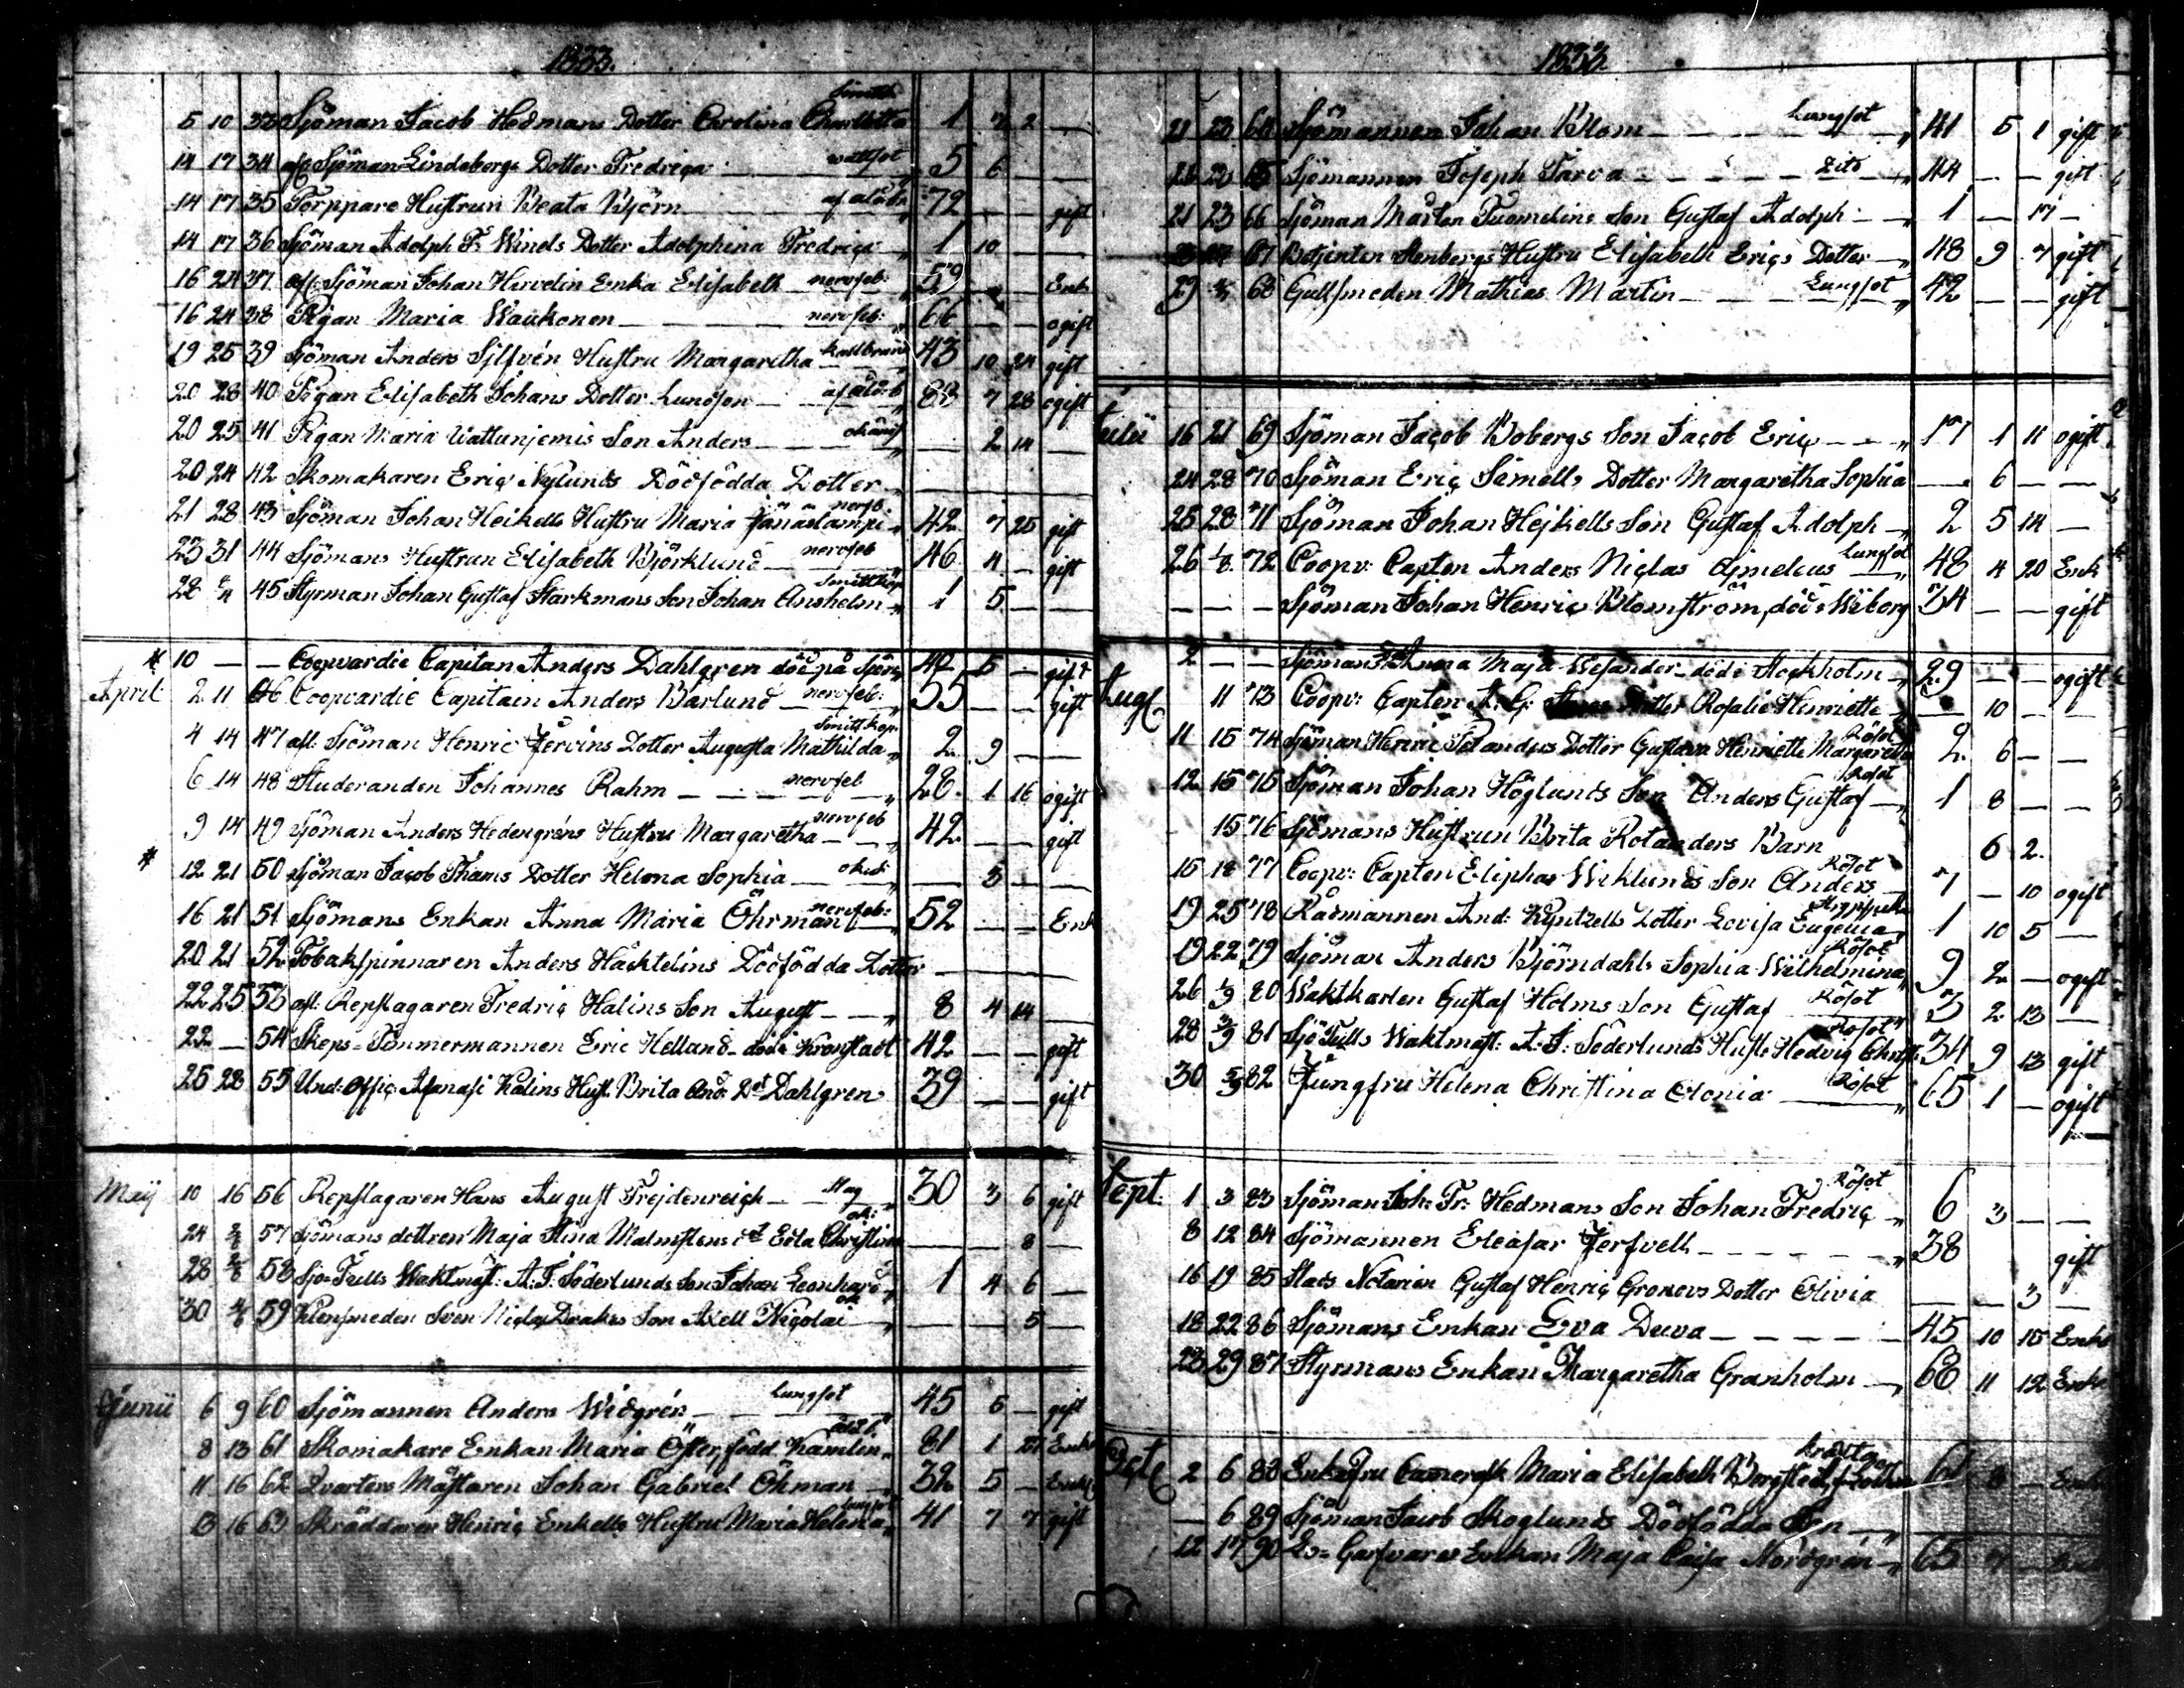 1833.
Smittk
5 10 33 Sjöman Jacob Hedmans Dotter Carolina Charlotta 1 7 2 —
14 17 34 afl. Sjöman Lindebergs Dotter Fredrica wattsot 5 6 — —
14 17 35 Torppare Hustrun Beata Björn af ålder 72 — — gift
14 17 36 Sjöman Adolph F. Winds Dotter Adolphina Fredrica 1 10 — —
16 24 37 afl. Sjöman Johan Hervelin Enka Elisabeth nervfeb: 59 — — Enk
16 24 38 Pigan Maria Waukonen nervfeb: 66 — — ogift
19 25 39 Sjöman Anders Silfvén Hustru Margaretha kallbrand 43 10 24 gift
20 28 40 Pigan Elisabeth Johans Dotter Lundsen af åld. 83 7 28 ogift
20 25 41 Pigan Maria Wattunjemis Son Anders okänd — 2 14 —
20 24 42 Skomakaren Eric Nylunds Dödfödda Dotter — — — —
21 28 43 Sjöman Johan Heikells Hustru Maria Jänäslampi nervf. 42 7 25 gift
23 31 44 Sjömans Hustrun Elisabeth Björklund nervfeb 46 4 — gift
28 45 Styrman Johan Gustaf Starkmans Son Johan Anshelm Smittkop 1 5 — —
* 10 — — Coopvardie Capitan Anders Dahlgren död på Sjön 42 5 — gift
April 2 11 46 Coopvardie Capitaen Anders Barlund nervfeb: 55 — — gift
4 14 47 afl. Sjöman Henric Jervins Dotter Augusta Mathilda Smittkop. 2 9 —
6 14 48 Studeranden Johannes Rahm nervfeb 28 1 16 ogift
9 14 49 Sjöman Anders Hedengréns Hustru Margaretha nervfeb 42 — — gift
* 12 21 50 Sjöman Jacob Thams Dotter Helena Sophia — 3 — —
16 21 51 Sjömans Enkan Anna Maria Öhrman nervfeb: 52 — — Enk
20 21 52 Tobakspinnaren Anders Häcktelins Dödfödda Dotter —
22 25 53 afl. Repslagaren Fredric Halins Son August 8 4 14 —
22 — 54 Skeps-Timmermannen Eric Helland död i Kronstadt 42 — — gift
25 28 55 Und: Offic: Afanasi Kalins Hust. Brita And: Dt Dahlgren 39 — — gift
Maij 10 16 56 Repslagaren Hans August Frejdenreich 30 3 6 gift
24 57 Sjömans dottren Maja Stina Malmstens dt Edla Christina ok: — — 8 —
28 58 Sjö-Tulls Waktmäst: A: J: Söderlunds Son Johan Leonhard 1 4 6 —
30 59 Klensmeden Sven Niclas Drakes Son Axell Nicolai ok — — 5 —
Junii 6 9 60 Sjömannen Anders Widgrén Lungsot 45 5 — gift
8 13 61 Skomakare Enkan Maria Öster, född Kamlen 81 1 Enk
11 16 62 Qvarters Mästaren Johan Gabriel Öhman 32 5 — Enkl
13 16 63 Skräddaren Henric Enkells Hustru Maria Helena lungsot 41 7 7 gift
1833
21 23 64 Sjömannen Johan Blom Lungsot 41 5 1 gift
65 Sjömannen Joseph Tarva 44 — — gift
21 23 66 Sjöman Mårten Tuomelins Son Gustaf Adolph 1 — 17 —
67 Betjenten Stenbergs Hustru Elisabeth Erics Dotter 48 9 7 gift
29 68 Gullsmeden Mathias Martin Lungsot 42 — — gift
Julii 16 21 69 Sjöman Jacob Bobergs Son Jacob Eric 17 1 11 ogift
24 28 70 Sjöman Eric Simells Dotter Margaretha Sophia — 6 — —
25 28 71 Sjöman Johan Hejkells Son Gustaf Adolph 2 5 14 —
26 1/8 72 Coopv: Capten Anders Niclas Ajmelcus Lungsot 48 4 20 Enk
— — — Sjöman Johan Henric Blomström, död i Wiborg 34 — — gift
2 — — Sjöman Anna Maja Wesander död i Stockholm 29 — — ogift
Aug 11 73 Coopv: Capten A: G: Dotter Rosalie Henriette — 10 — —
11 15 74 Sjöman Henric Dotter Gustava Henriette Margaretha Rösot 2 6 — —
12 15 75 Sjöman Johan Höglunds Son Anders Gustaf Rösot 1 8 — —
15 76 Sjömans Hustrun Brita Rotanders Barn 6 2
15 18 77 Coopv: Capten Eliphas Wiklunds Son Anders Rösot 7 — 10 ogift
19 25 78 Rådmannen And: Kyntzells Dotter Lovisa Eugenia 1 10 5 —
19 22 79 Sjöman Anders Björndahls Sophia Wilhelmina Rösot 9 2 — ogift
26 1/9 80 Waktkarlen Gustaf Holms Son Gustaf Rösot 3 2 13 —
28 3/9 81 Sjö Tulls Waktmäst: A: J: Söderlunds Hustr Hedvig Christ Rösot 34 9 13 gift
30 5/9 82 Jungfru Helena Christina Clonia Rösot 65 1 — ogift
Sept. 1 3 83 Sjöman Joh: Fr: Hedmans Son Johan Fredric Rösot 6 3 — —
8 12 84 Sjömannen Eleasar Jerfvell 38 gift
16 19 85 Stads Notarien Gustaf Henric Gronovs Dotter Olivia — — 3 —
18 22 86 Sjömans Enkan Eva Duva 45 10 15 Enk
23 29 87 Styrmans Enkan Margaretha Granholm 68 11 12 Enk
Oct 2 6 88 Enkefru Camerersk Maria Elisabeth Bergsted 8 —
— 6 89 Sjöman Jacob Skoglunds Dödfödda Son —
12 17 90 Garfvares Enkan Maja Caisa Nordgrén 65 7 —